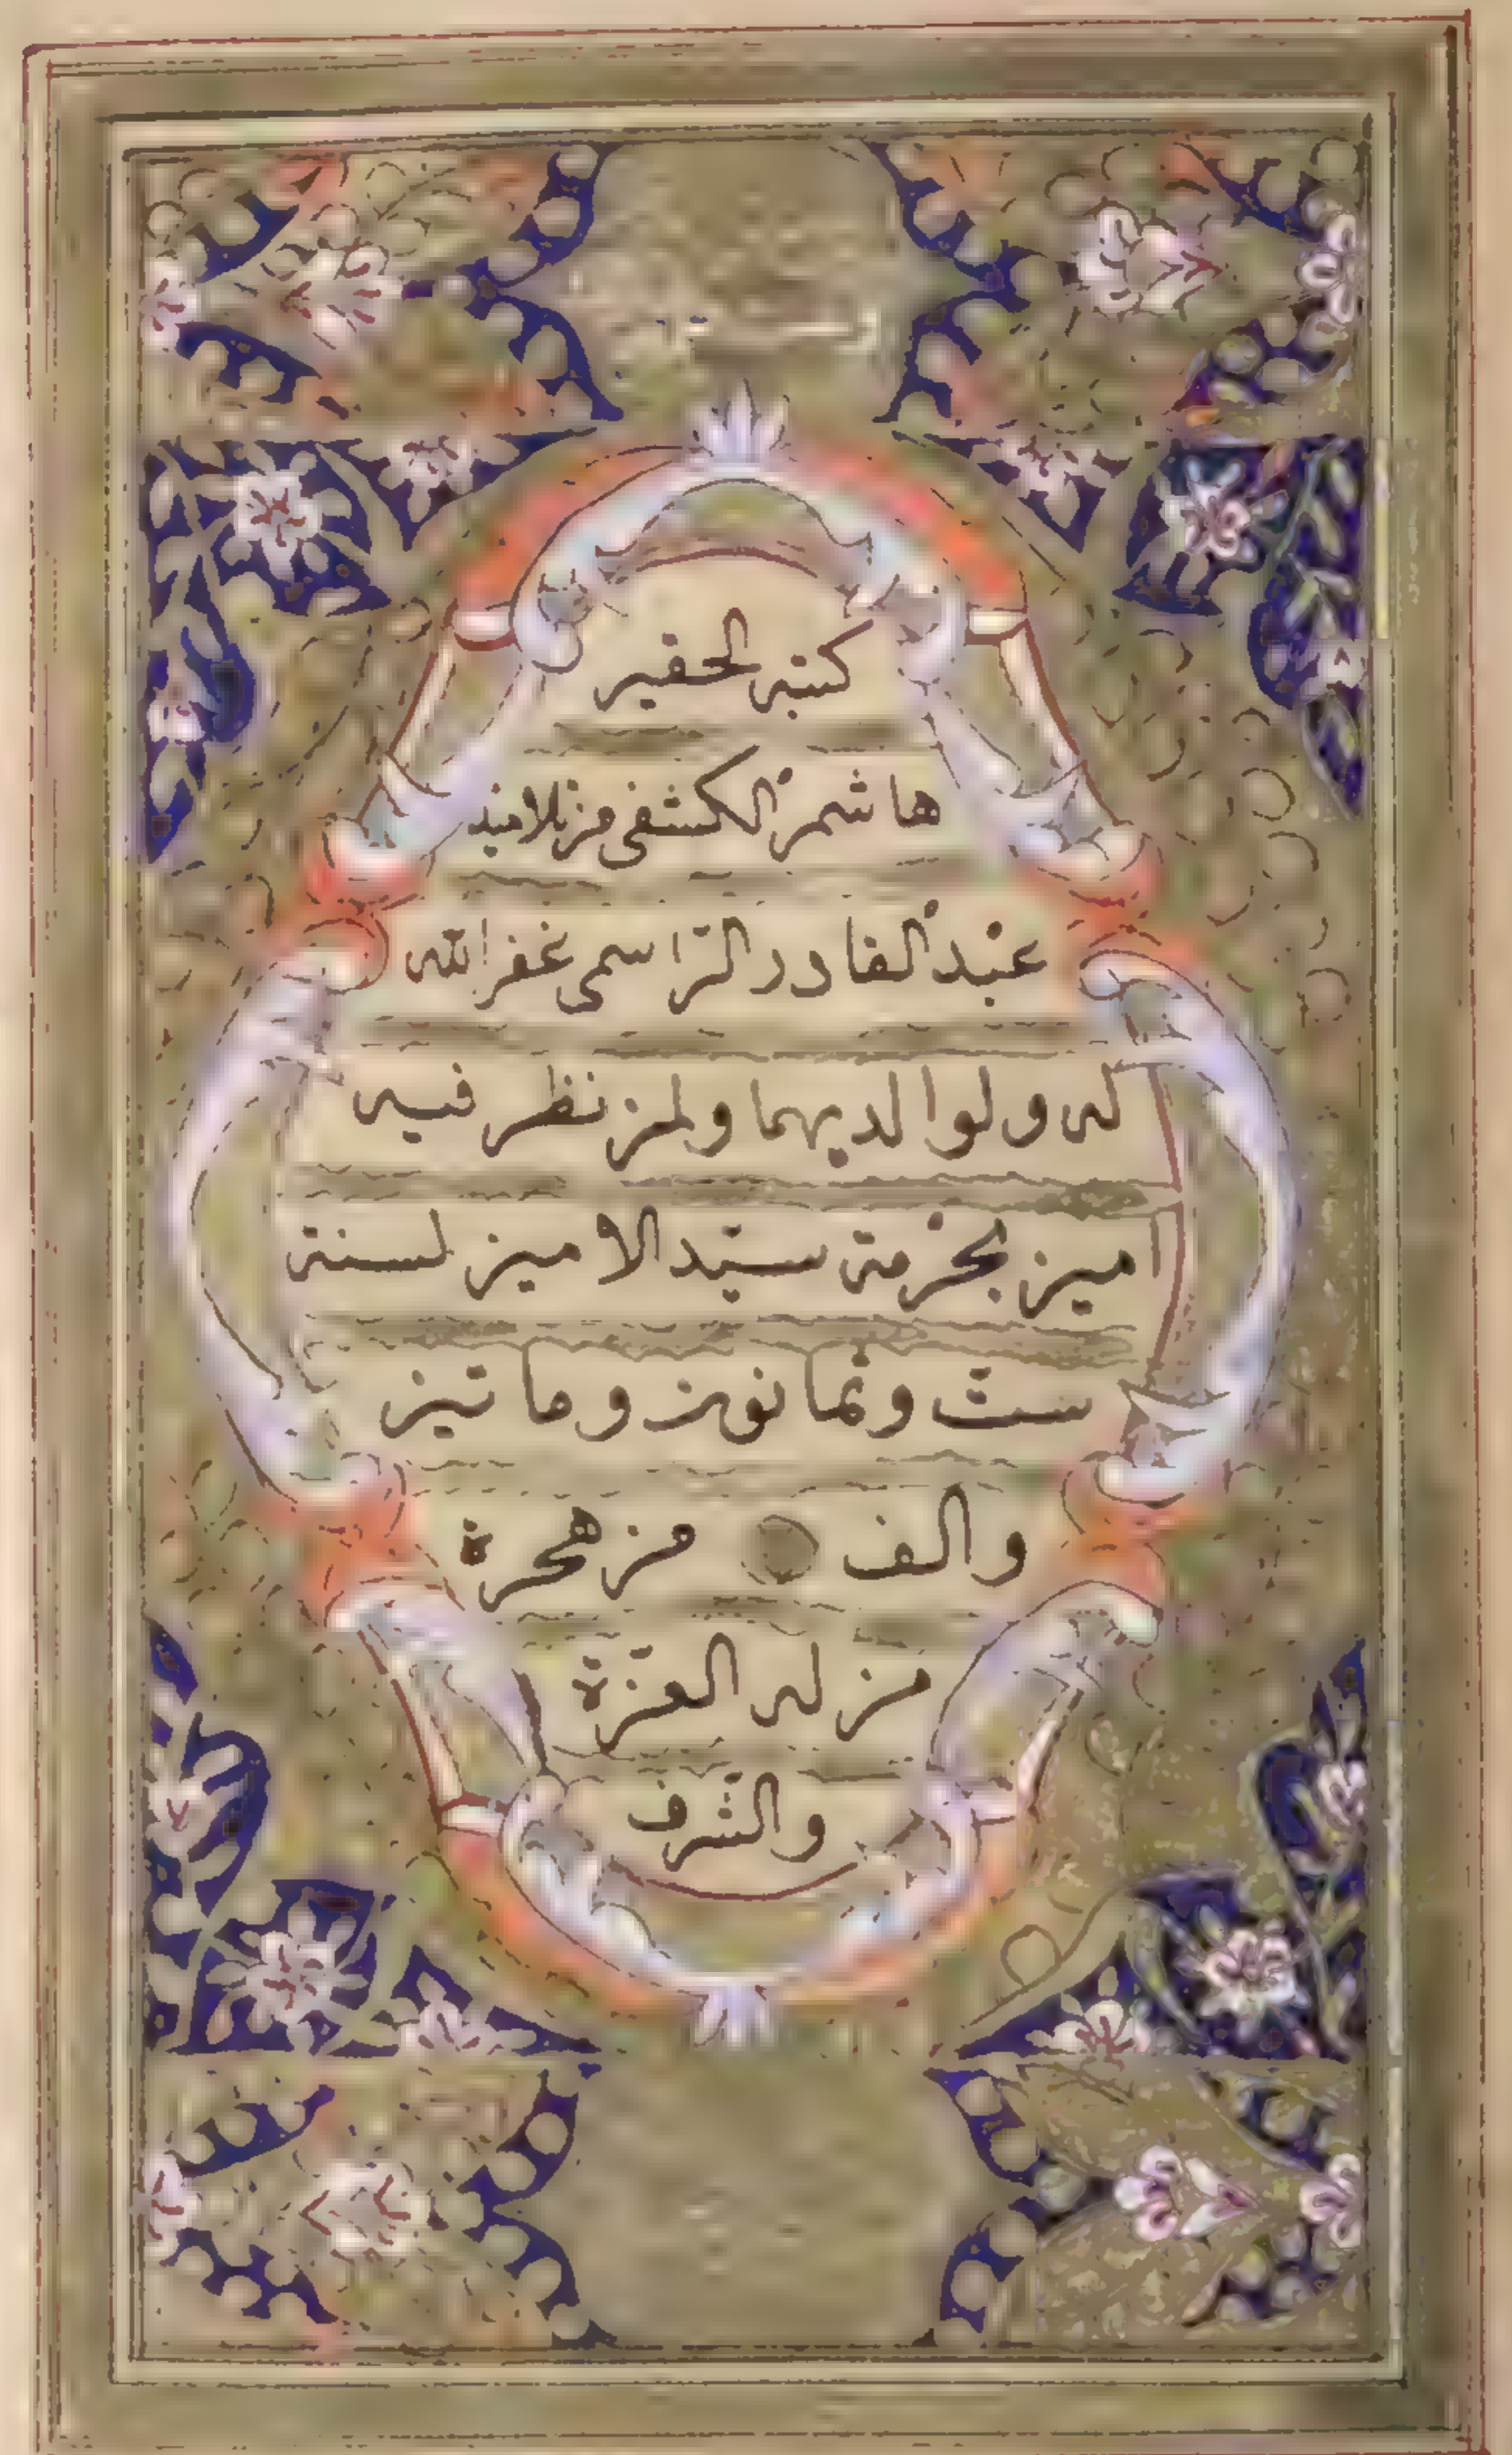 كتبه الحقير
هاشم الكشفى من تلاميذ
عبد القادر الراسمى غفر الله
له ولوالديهما ولمن نظر فيه
امين بحرمة سيد الامين لسنة
ست وثمانون وماتين
والف من هجرة
من له العزة
والشرف